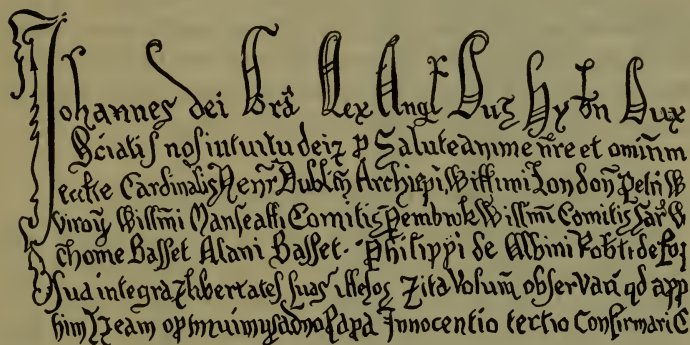 Johannes dei Grã Rex Angl Dns Hybn Dux
Sciatis nos intuitu dei ⁊ p Salute anime nr̃e et omĩum
eccłie Cardinalis Henr̃ Dublin̄ Archiepi, Willimi London̄ Petri W
viroꝝ Willm̃i Marescalli Comitis Pembrok Willm̃i Comitis Sar̃ W
Thome Basset Alani Basset Philippi de Albini Robti de Rop
Sua integra ⁊ libertates suas illesas ⁊ ita volum̃ observari qd app
him ⁊ eam optinuimus a dno Papa Innocentio tertio Confirmari C